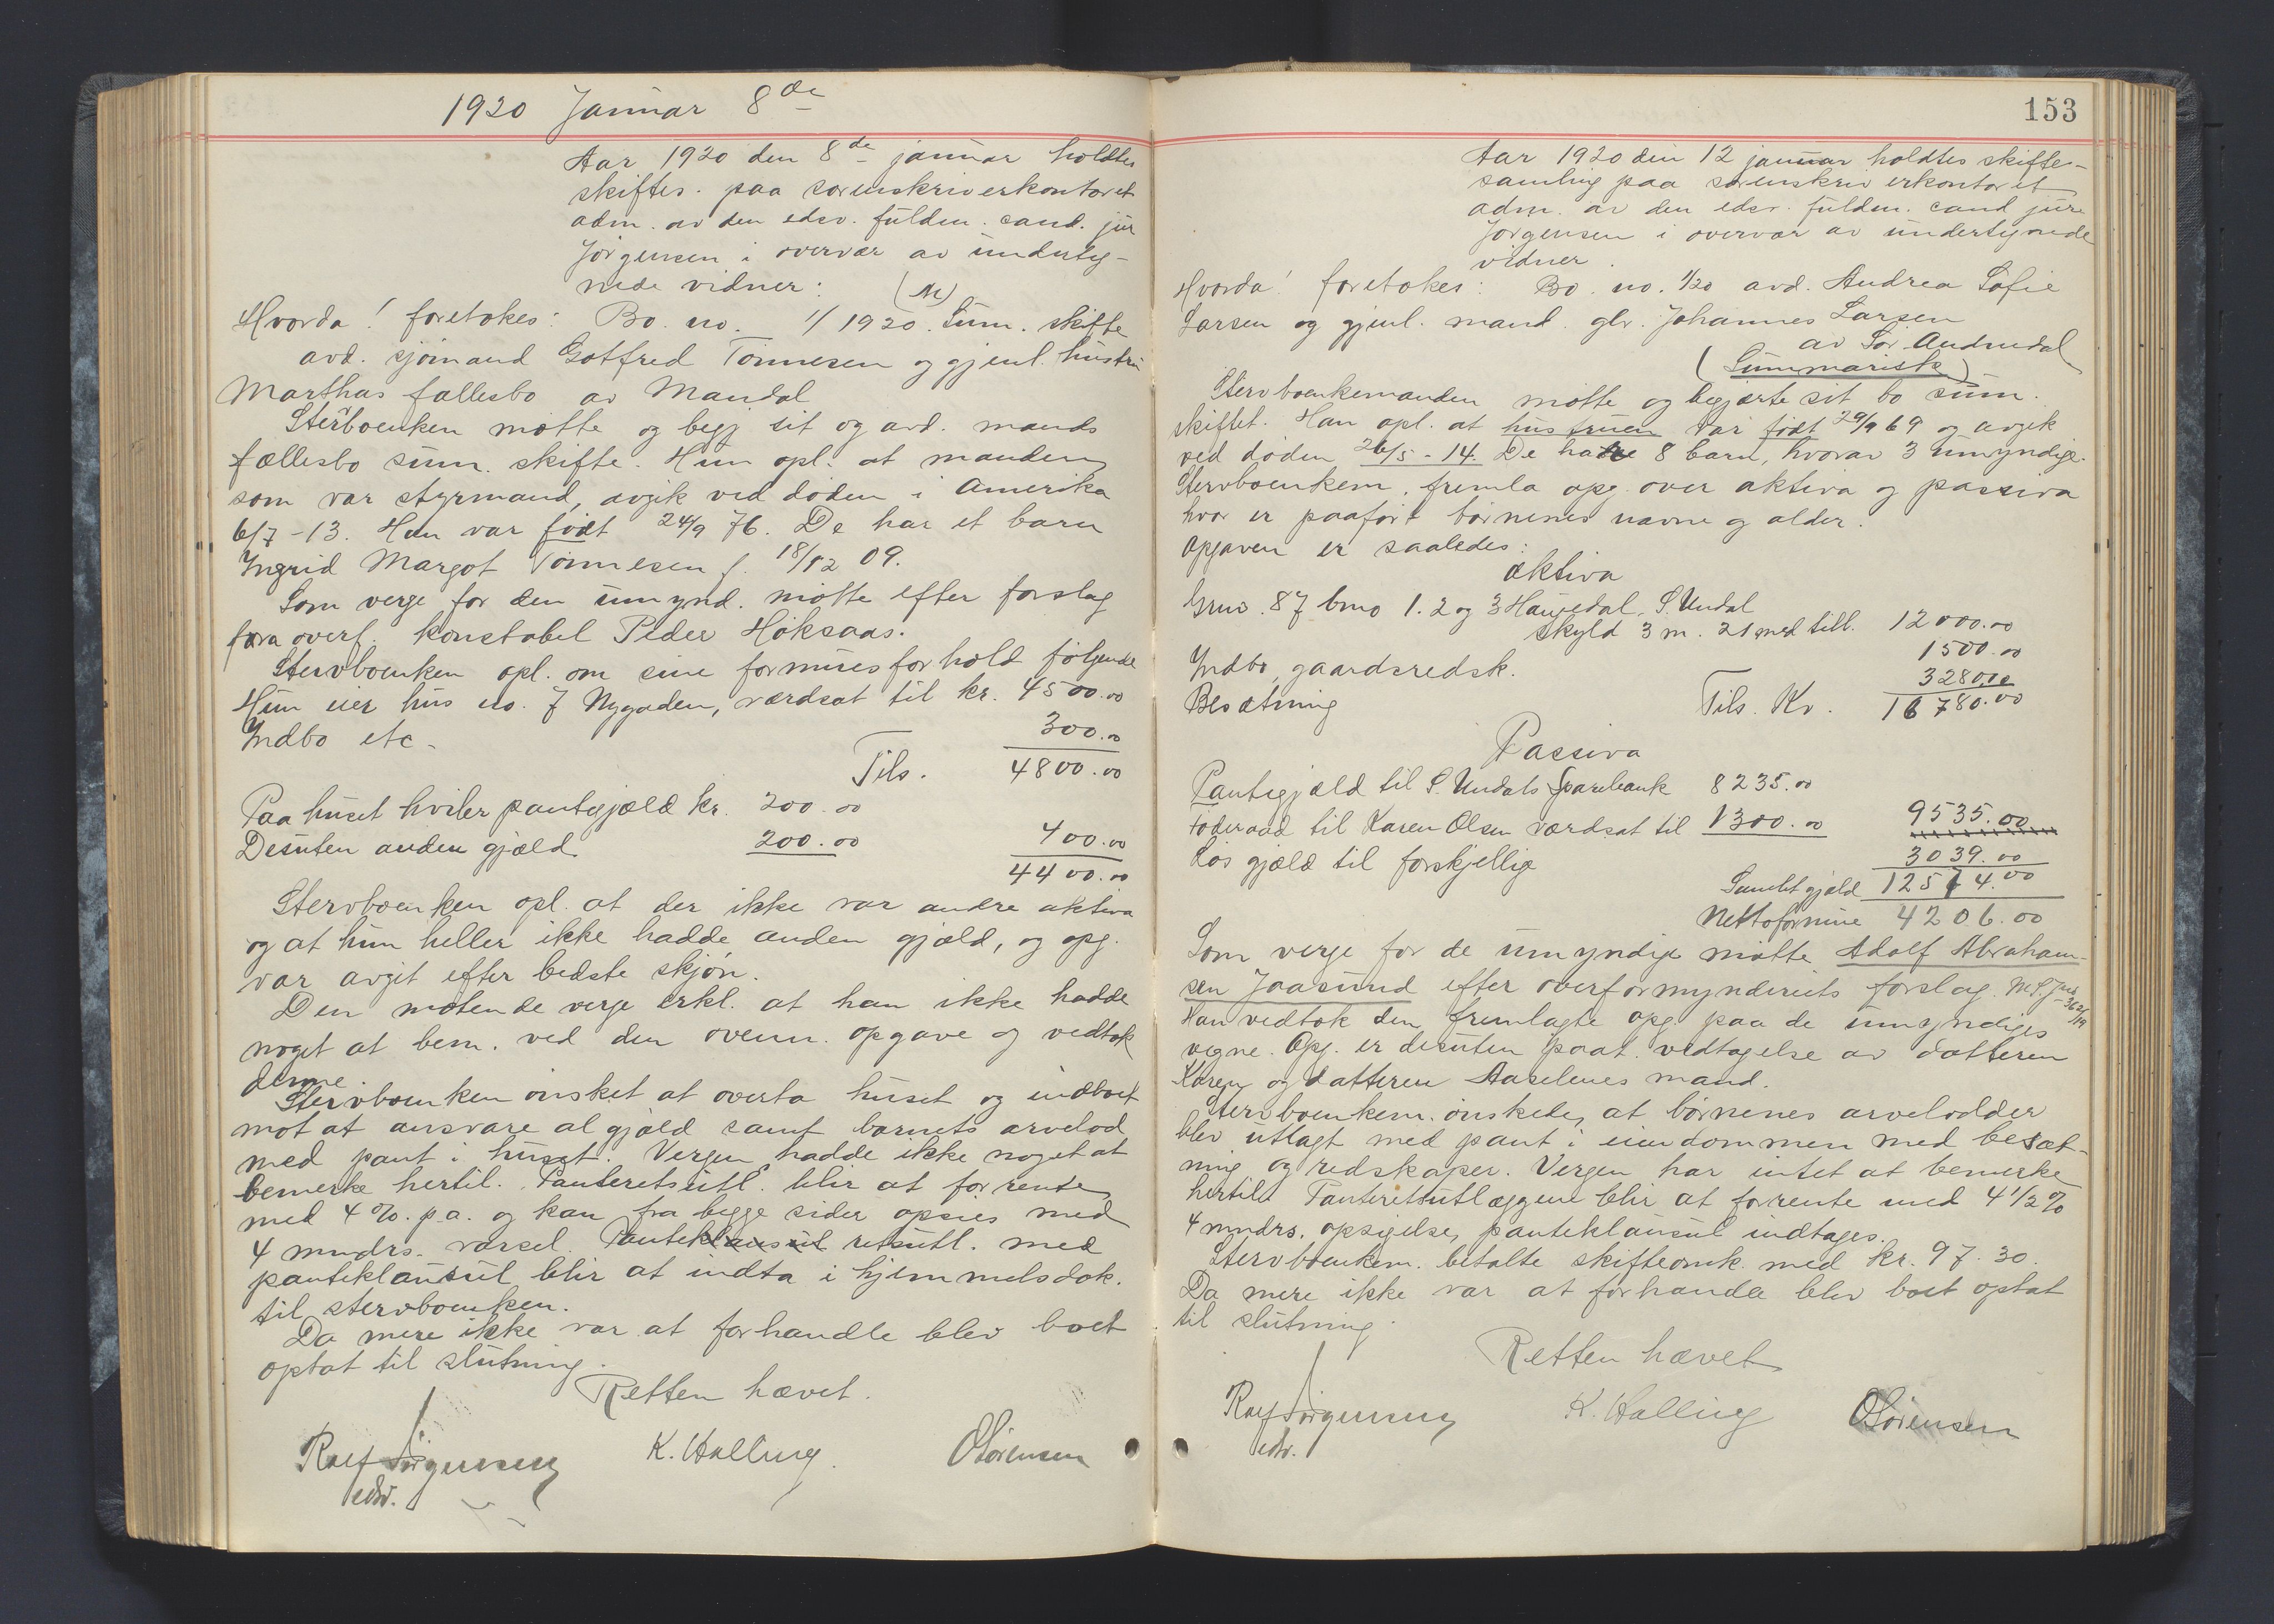 1920 Januar 8de
Aar 1920 den 8de januar holdtes
skiftes. paa sorenskriverkontoret
adm. av den edsv. fuldm. cand. jur
Jørgensen i overvær av underteg-
nede vidner:
Hvorda! foretokes: Bo. no. 1/1920. Sum. skifte
avd. sjømand Gotfred Tønnesen og gjenl. hustru
Marthas fællesbo av Mandal
Stervboenken møtte og begj sit og avd. mands
fællesbo sum. skifte. Hun opl. at manden
som var styrmand, avgik ved døden i Amerika
6/7-13. Han var født 24/9 76. De har et barn
Ingrid Margot Tønnesen f. 18/12 09.
Som verge for den umynd. møtte efter forslag
fra overf. konstabel Peder Høksaas.
Stervboenken opl. om sine formuesforhold følgende
Hun eier hus no. 7 Nygaden, værdsat til kr. 4500.00
Indbo etc. 300.00
Tils. 4800.00
Paa huset hviler pantegjæld kr. 200.00
Desuten anden gjæld 200.00 400.00
4400.00
Stervboenken opl. at der ikke var andre aktiva
og at hun heller ikke hadde anden gjæld, og opg.
var avgit efter bedste skjøn.
Den møtende verge erkl. at han ikke hadde
noget at bem. ved den ovenn. opgave og vedtok
denne.
Stervboenken ønsket at overta huset og indboet
mot at ansvare al gjæld samt barnets arvelod
med pant i huset. Vergen hadde ikke noget at
bemerke hertil. Panteretsutl. blir at forrente
med 4%. p.a. og kan fra begge sider opsies med
4 mndrs. varsel. Panteklausul retsutl. med
panteklausul blir at indta i hjemmelsdok.
til stervboenken.
Da mere ikke var at forhandle blev boet
optat til slutning.
Retten hævet.
Rolf Jørgensen K. Halling. O Sørensen
edsv.
153
Aar 1920 den 12 januar holdtes skifte-
samling paa sorenskriverkontoret
adm. av den edsv. fuldm. cand jure
Jørgensen i overvær av undertegnede
vidner.
Hvorda! foretokes: Bo. no. 1/20 avd. Andrea Sofie
Larsen og gjenl. mand. gbr. Johannes Larsen
av Sør Audnedal
(Summarisk)
Stervboenkemanden møtte og begjærte sit bo sum.
skiftet. Han opl. at hustruen var født 29/9 69 og avgik
ved døden 26/5-14. De hadde 8 barn, hvorav 3 umyndige.
Stervboenkem. fremla opg. over aktiva og passiva
hvor er paaført børnenes navne og alder.
Opgaven er saaledes:
Aktiva
Grno. 87 bno 1. 2 og 3 Haugedal, S. Undal
skyld 3 m. 21 med till. 12000.00
Indbo, gaardsredsk. 1500.00
Besætning 3280.00
Tils. Kr. 16780.00
Passiva
Pantegjæld til S. Undals Sparebank 8235.00
Føderaad til Karen Olsen værdsat til 1300.00 9535.00
Løs gjæld til forskjellige 3039.00
Samlet gjæld 12574.00
Nettoformue 4206.00
Som verge for de umyndige møtte Adolf Abraham-
sen Jaasund efter overformynderiets forslag.
Han vedtok den fremlagte opg. paa de umyndiges
vegne. Opg. er desuten paat. vedtagelse av datteren
Karen og datteren Aaselenes mand.
Stervboenkem. ønskede, at børnenes arvelodder
blev utlagt med pant i eiendommen med besæt-
ning og redskaper. Vergen har intet at bemerke
hertil. Panteretsutlæggene blir at forrente med 4 1/2 %
4 mndrs. opsigelse, panteklausul indtages.
Stervboenkem. betalte skifteomk. med kr. 97.30.
Da mere ikke var at forhandle blev boet optat
til slutning.
Retten hævet
Rolf Jørgensen K. Halling O Sørensen
edsv.